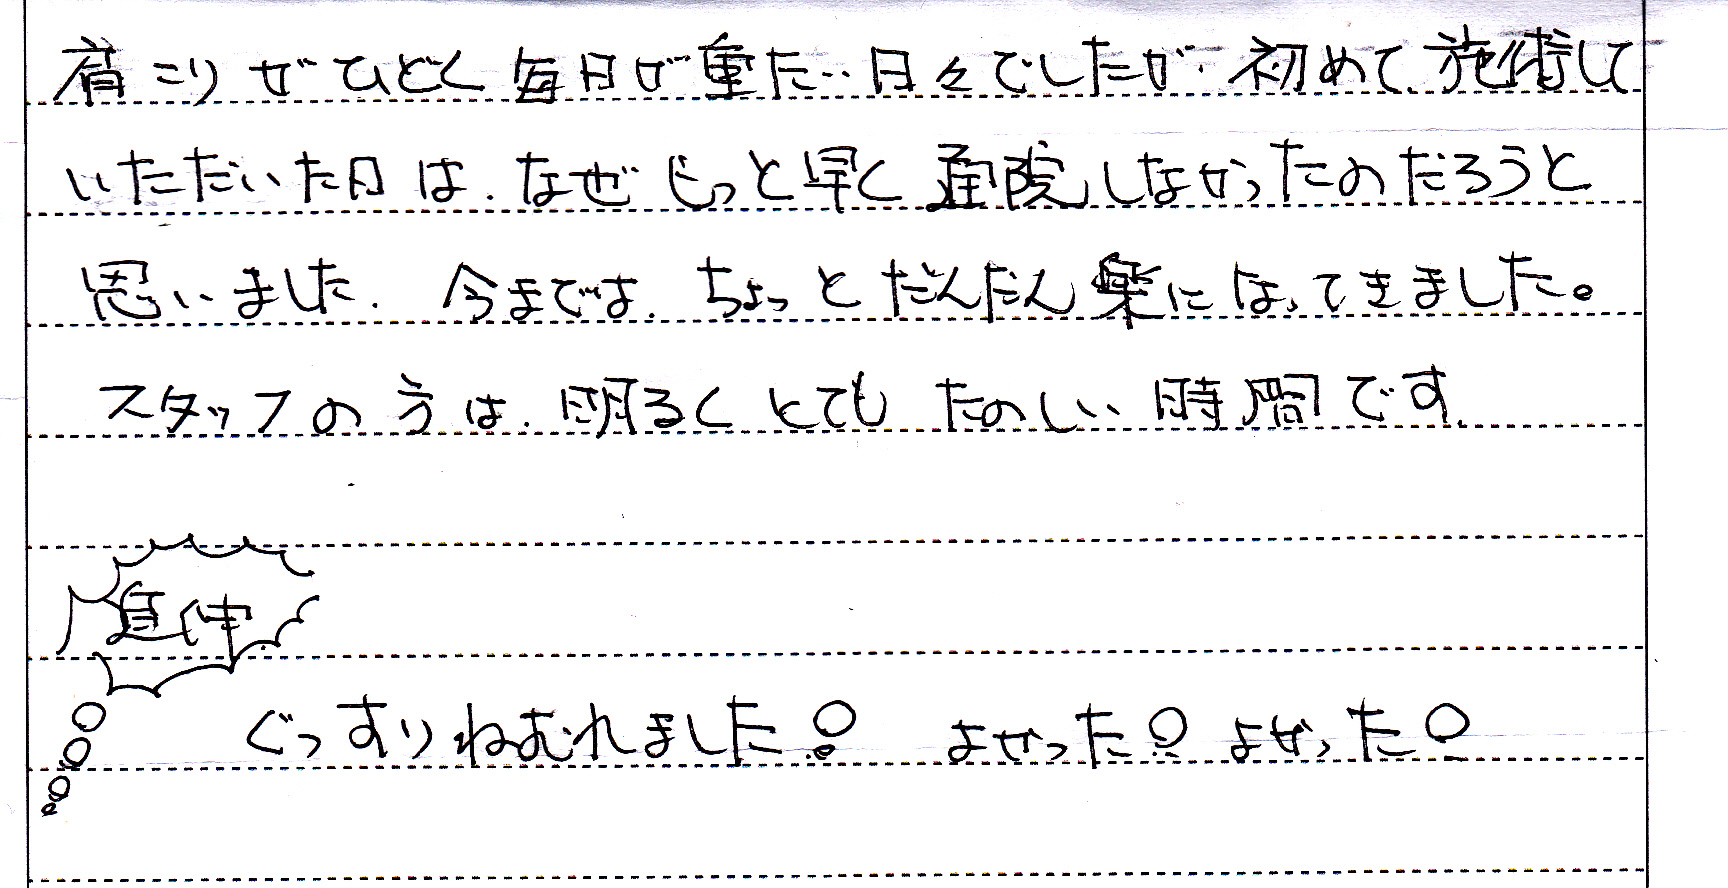 肩こりがひどく毎日が重た…日々でしたが、初めて施術して
いただいた日は、なぜもっと早く通院しなかったのだろうと
思いました。今までは、ちょっとだんだん楽になってきました。
スタッフの方は、明るくとてもたのしい時間です。
追伸
ぐっすりねむれました! よかった! よかった!